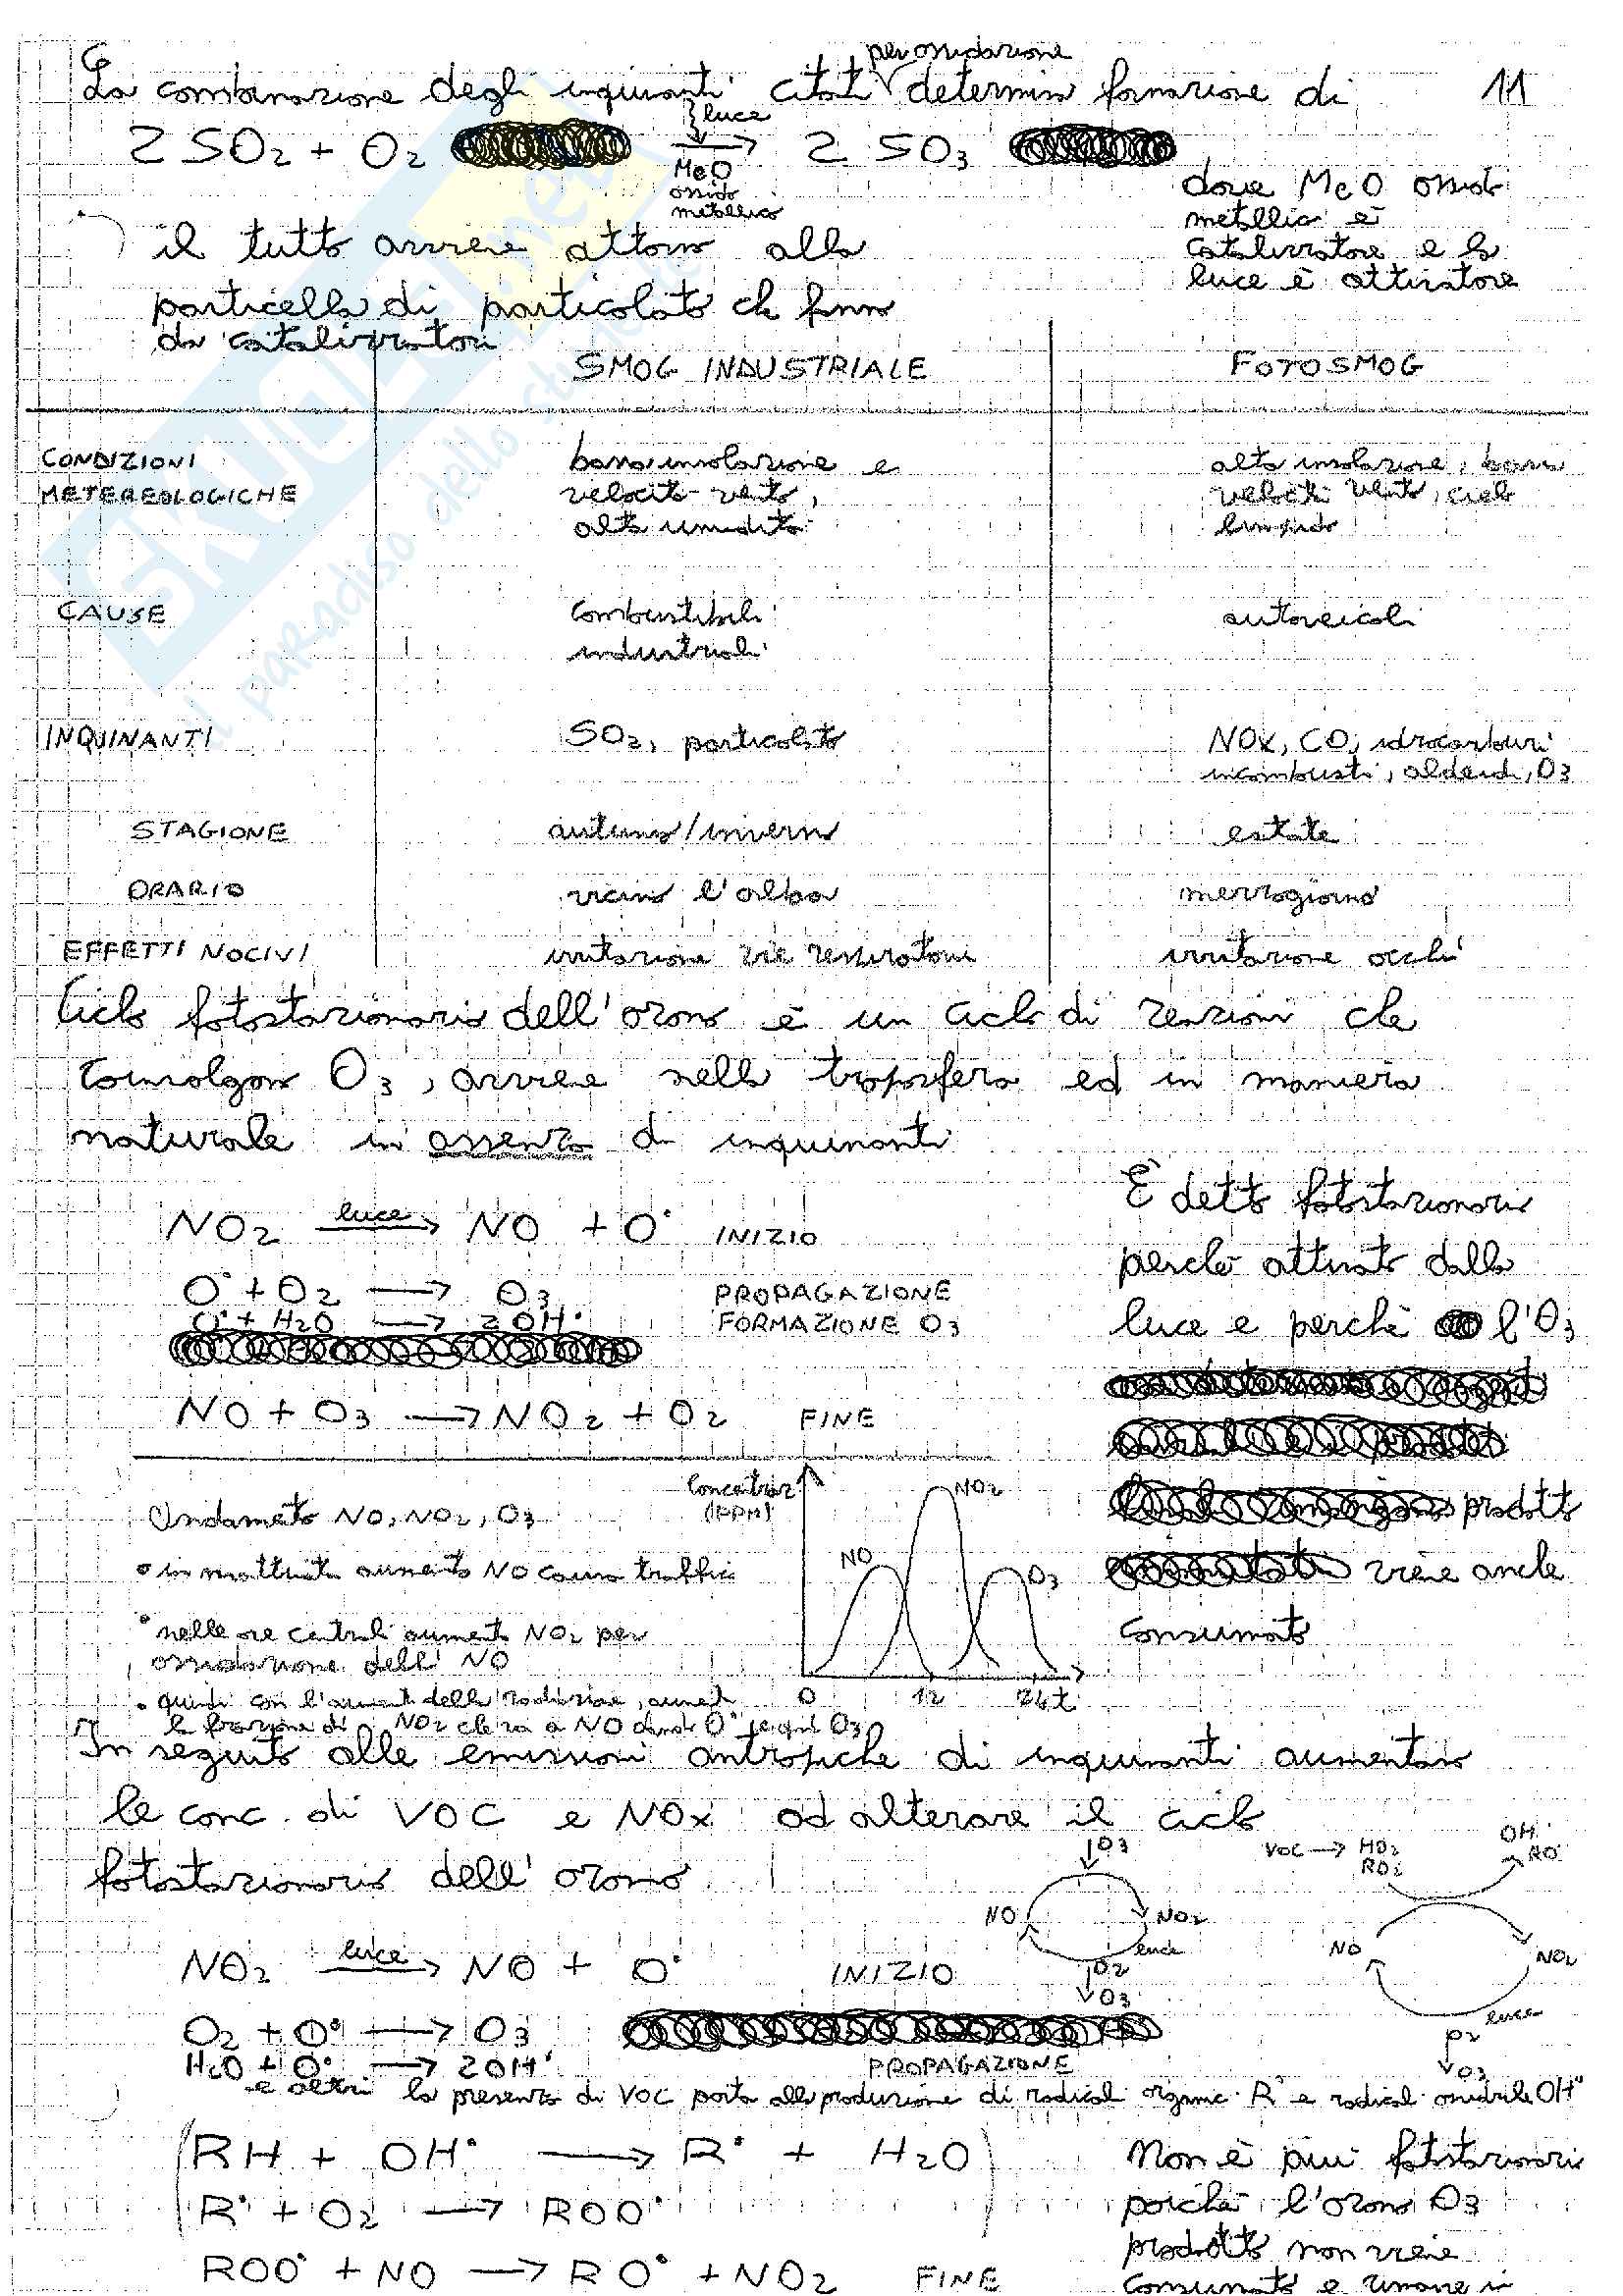 per ossidazione
La combinazione degli inquinanti citati determina formazione di 11
2 SO2 + O2 → 2 SO3
luce
MeO
ossido
metallico
dove MeO ossido
metallico è
catalizzatore e la
luce è attivatore
il tutto avviene attorno alla
particella di particolato che fanno
da catalizzatori
SMOG INDUSTRIALE FOTOSMOG
CONDIZIONI METEREOLOGICHE
bassa insolazione e
velocità vento,
alta umidità
alta insolazione, bassa
velocità vento, cielo
limpido
CAUSE
combustibili
industriali
autoveicoli
INQUINANTI
SO2, particolato
NOx, CO, idrocarburi
incombusti, aldeidi, O3
STAGIONE autunno/inverno estate
ORARIO vicino l'alba mezzogiorno
EFFETTI NOCIVI irritazione vie respiratorie irritazione occhi
Ciclo fotostazionario dell'ozono è un ciclo di reazioni che
coinvolgono O3, avviene nella troposfera ed in maniera
naturale in assenza di inquinanti
NO2 luce → NO + O• INIZIO
O• + O2 → O3 PROPAGAZIONE
O• + H2O → 2OH• FORMAZIONE O3
NO + O3 → NO2 + O2 FINE
È detto fotostazionario
perché attivato dalla
luce e perché l'O3
prodotto
viene anche
consumato
Andamento NO, NO2, O3
• in mattinata aumenta NO causa traffico
• nelle ore centrali aumenta NO2 per
ossidazione dell' NO
• quindi con l'aumento della radiazione, aumenta
la frazione di NO2 che va a NO dando O• e quindi O3
Concentraz
(PPM)
NO NO2 O3
0 12 24 t
In seguito alle emissioni antropiche di inquinanti aumentano
le conc. di VOC e NOx ad alterare il ciclo
fotostazionario dell'ozono
O3
NO NO2
luce
O2
O3
VOC → HO2•
RO2•
OH•
RO•
NO NO2
luce
O2
O3
NO2 luce → NO + O• INIZIO
O2 + O• → O3
H2O + O• → 2OH• PROPAGAZIONE
e altri la presenza di VOC porta alla produzione di radicali organici R• e radicali ossidrile OH•
(RH + OH• → R• + H2O)
R• + O2 → ROO•
ROO• + NO → RO• + NO2 FINE
Non è più fotostazionario
poiché l'ozono O3
prodotto non viene
consumato e rimane in